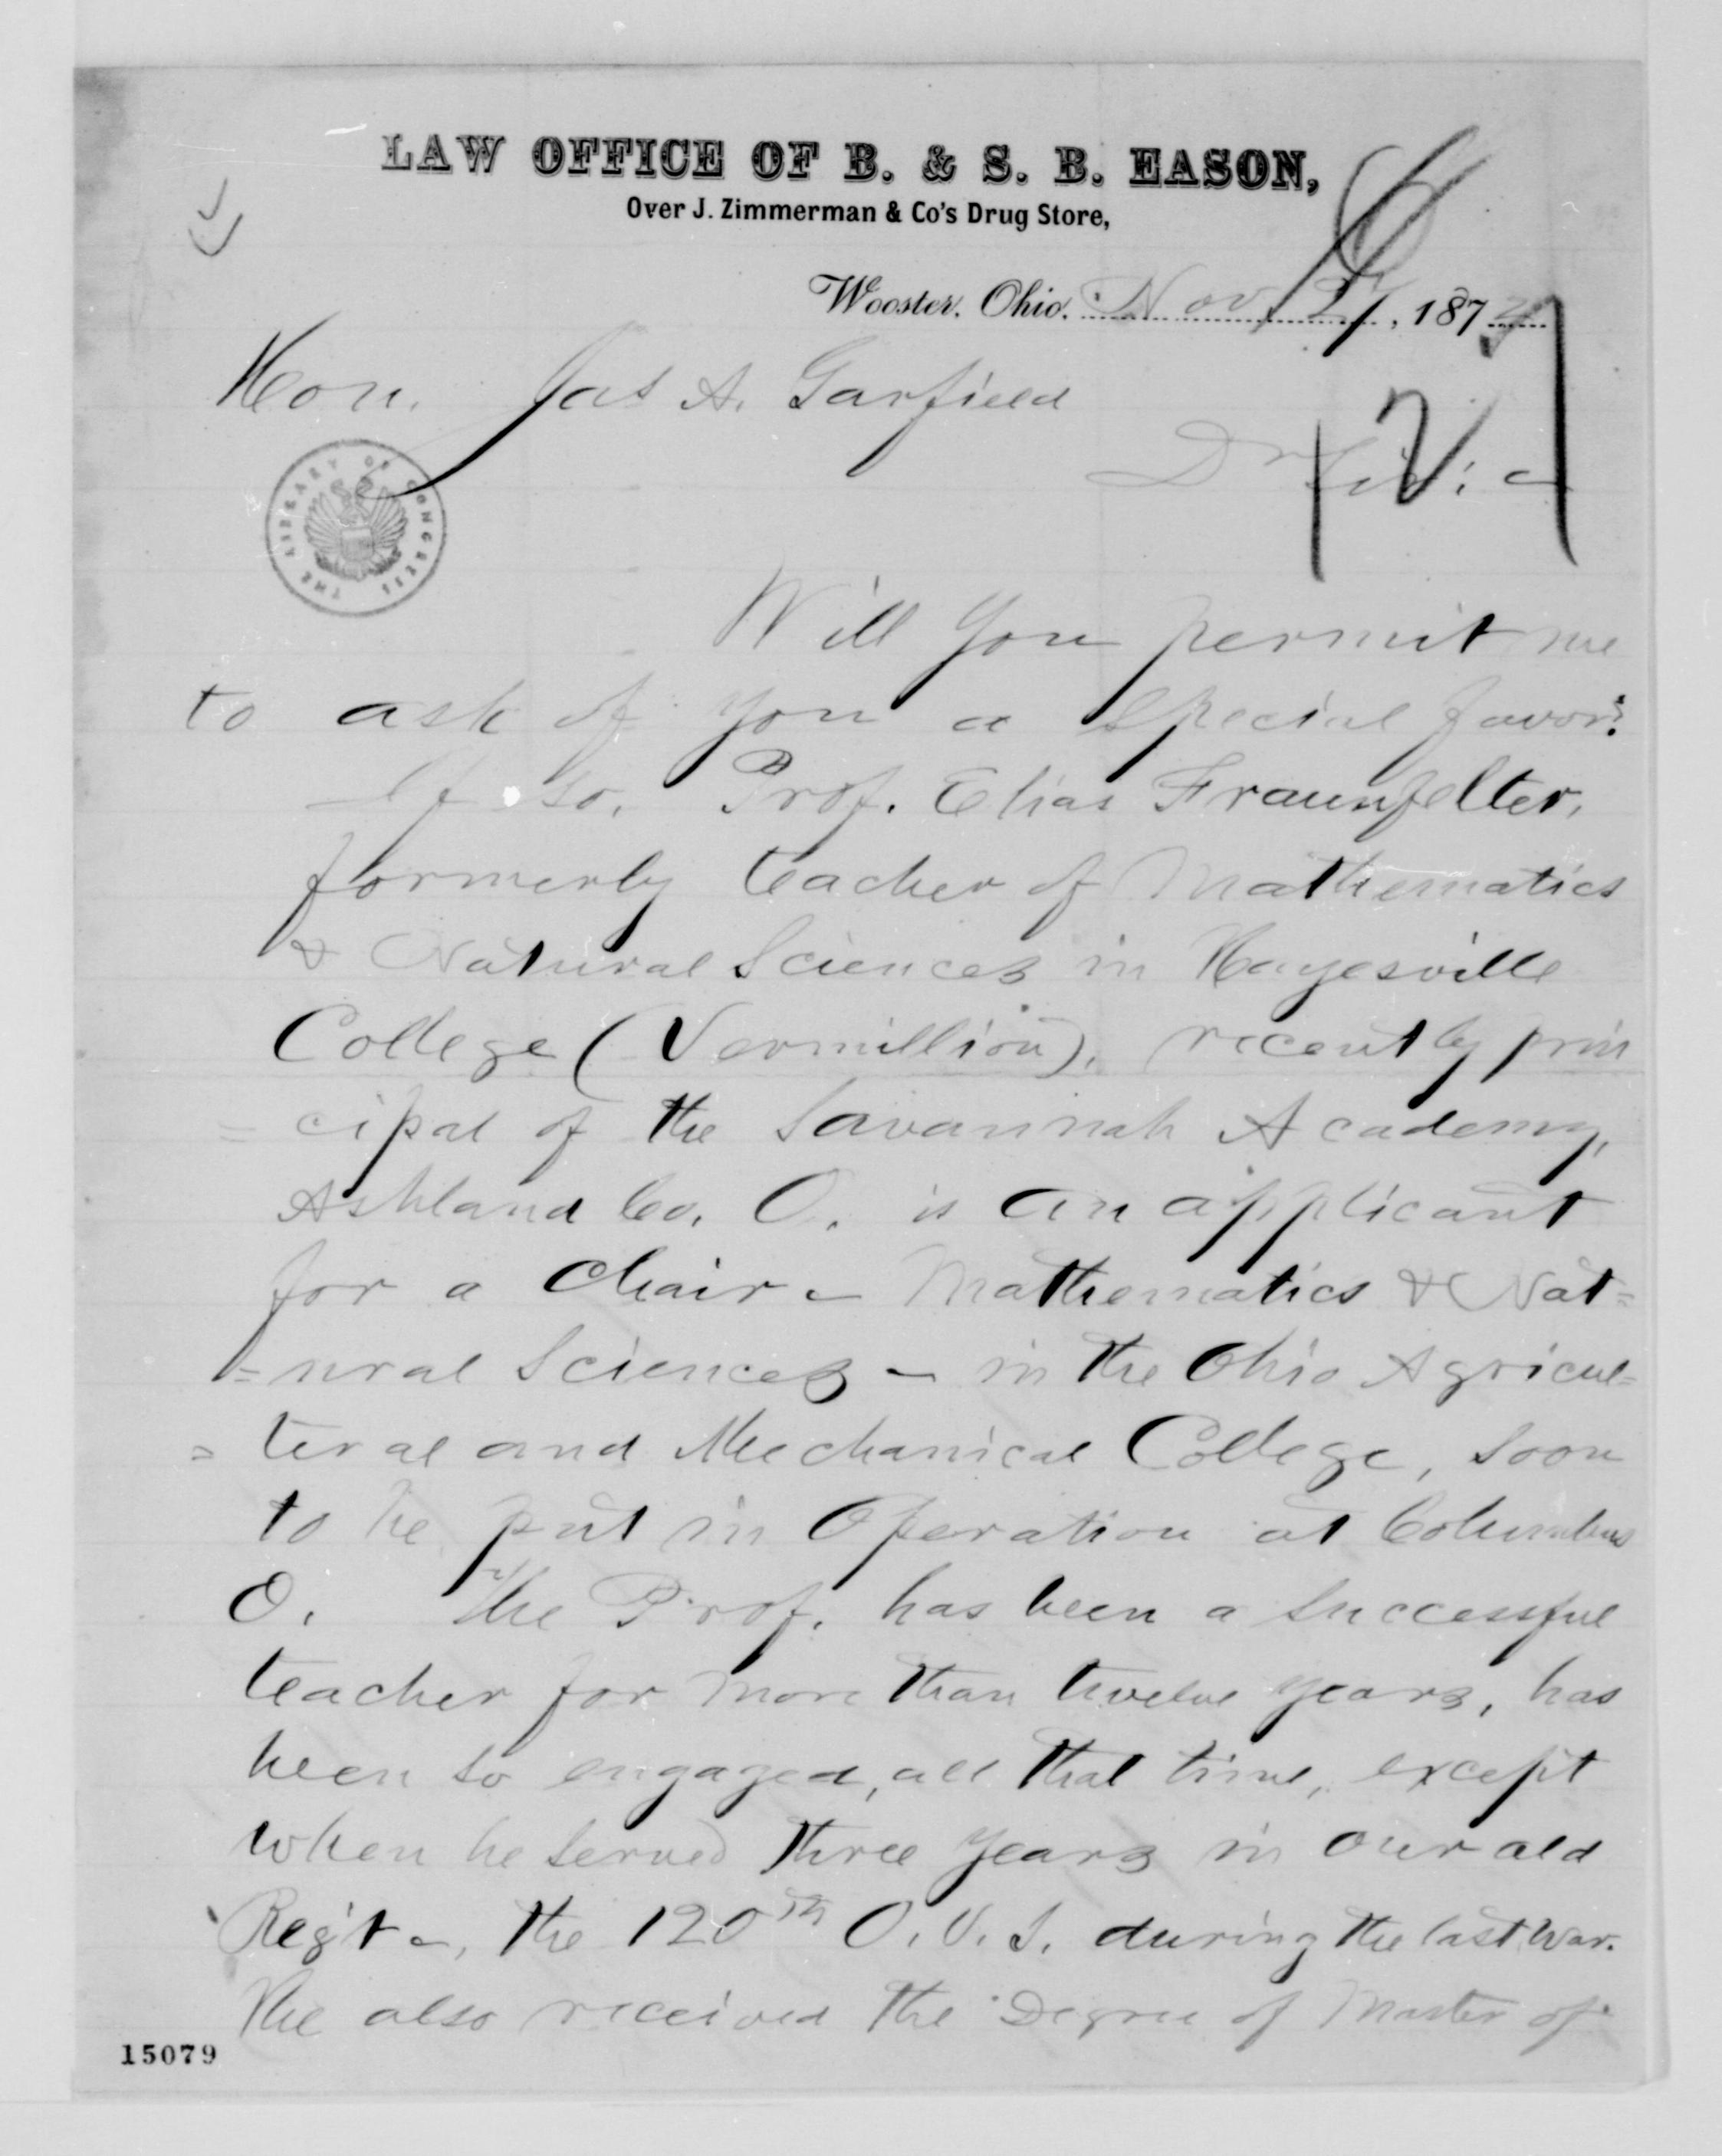 LAW OFFICE OF B. & S. B. EASON,
Over J. Zimmerman & Co's Drug Store,
Wooster, Ohio. Nov 27, 1872
Hon. Jas A. Garfield
Dr Sir: –
THE LIBRARY OF CONGRESS
Will you permit me
to ask of you a special favor?
If so, Prof. Elias Fraunfelter,
formerly teacher of Mathematics
& Natural Sciences in Hayesville
College (Vermillion), recently prin
= cipal of the Savannah Academy,
Ashland Co. O. is an applicant
for a Chair – Mathematics & Nat=
=ural Sciences – in the Ohio Agricul=
= tural and Mechanical College, soon
to be put in Operation at Columbus
O. The Prof. has been a successful
teacher for more than twelve years, has
been so engaged, all that time, except
when he served three years in our old
Reg't –, the 120th O. V. I. during the last war.
He also received the Degree of Master of
15079